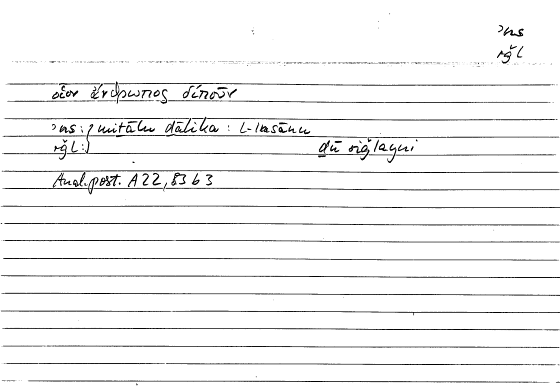 ʾns
rǧl
οἷον ἄνθρωπος δίπουν
ʾns: miṯālu ḏālika: l-insānu
rǧl: ḏū riǧlayni
Anal. post. A 22, 83 b 3